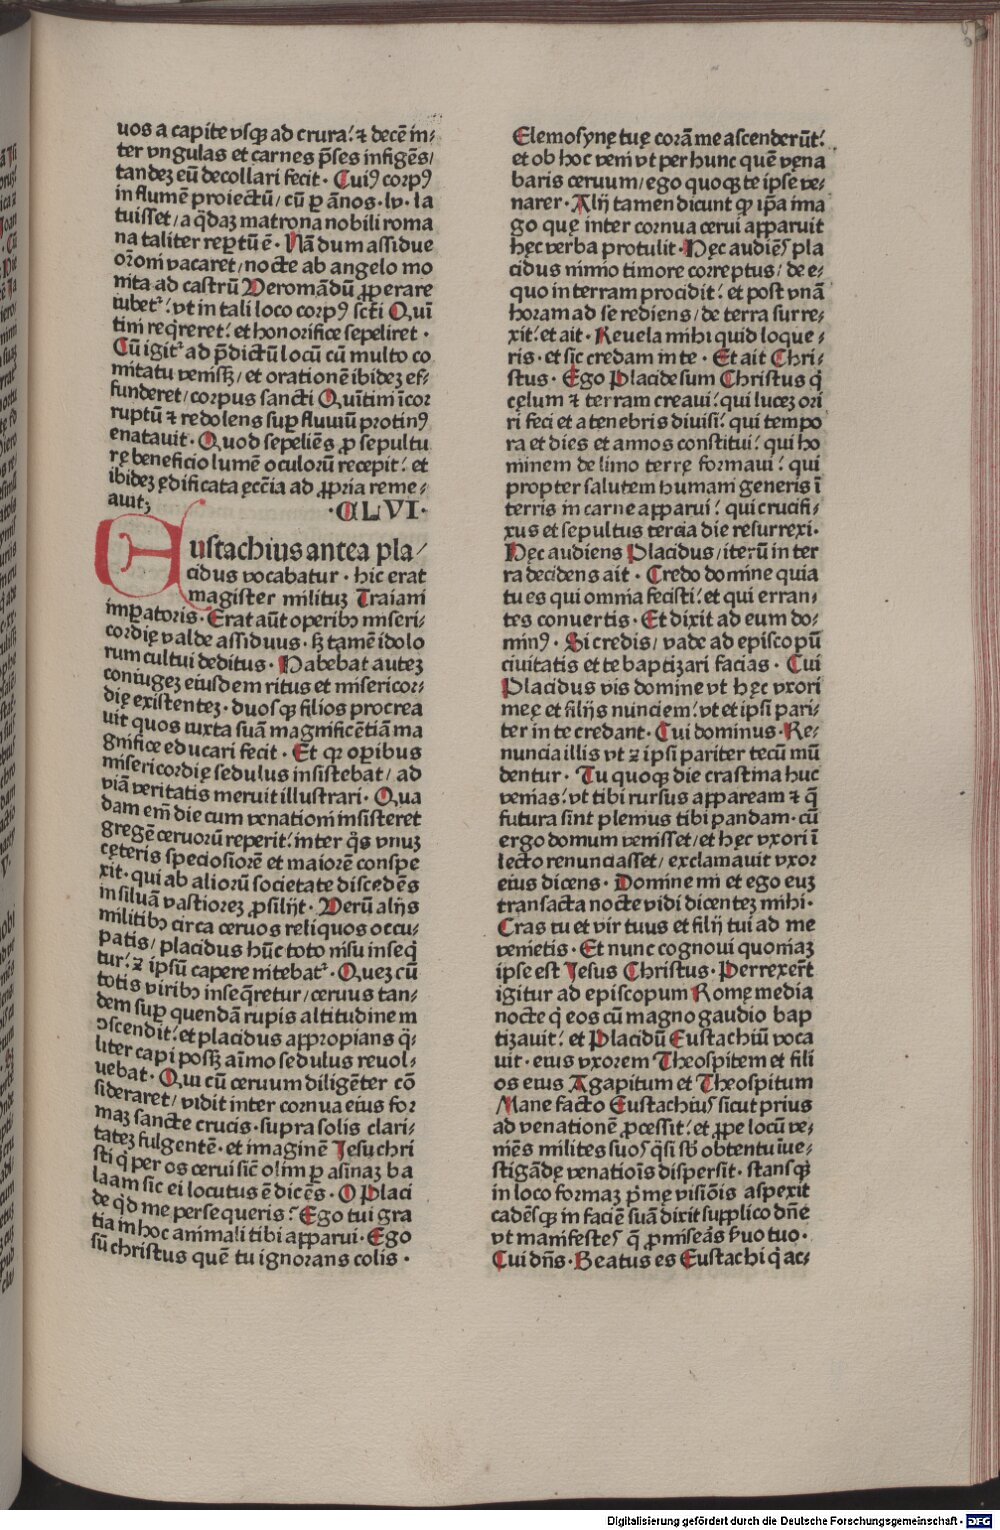 uos a capite vsqꝫ ad crura: ⁊ decē in⸗
ter vngulas et carnes p̄ses infigēs/
tandeꝫ eū decollari fecit · Cuiꝰ corpꝰ
in flumē proiectū/ cū ꝑ ānos · lv · la
tuisset/ a q̄daꝫ matrona nobili roma
na taliter repertū ē · Nā dum assidue
or̄oni vacaret/ nocte ab angelo mo
nita ad castrū Veromādū ꝓperare
iubetᷣ: vt in tali loco corpꝰ scti Quī
tini reqͥreret: et honorifice sepeliret ·
Cū igitᷣ ad p̄dictū locū cū multo co
mitatu venisꝫ/ et orationē ibideꝫ ef⸗
funderet/ corpus sancti Quītini īcor
ruptū ⁊ redolens suꝑ fluuiū protinꝰ
enatauit · Quod sepeliēs ꝓ sepultu
rę beneficio lumē oculorū recepit: et
ibideꝫ ędificata ecc̄ia ad ꝓpria reme⸗
auit; ·CLVI·
Eustachius antea pla/
cidus vocabatur · hic erat
magister milituꝫ Traiani
imꝑatoris · Erat aūt operibꝰ miseri⸗
cordię valde assiduus · sꝫ tamē idolo
rum cultui deditus · Habebat auteꝫ
coniugeꝫ eiusdem ritus et misericor⸗
dię existenteꝫ · duosqꝫ filios procrea
uit quos iuxta suā magnificētiā ma
gnifice educari fecit · Et qꝛ oꝑibus
misericordię sedulus insistebat/ ad
viā veritatis meruit illustrari · Qua
dam em̄ die cum venationi insisteret
gregē ceruorū reperit: inter qͦs vnuꝫ
cęteris speciosiorē et maiorē conspe
xit · qui ab aliorū societate discedēs
in siluā vastioreꝫ ꝓsilijt · Verū alijs
militibꝰ circa ceruos reliquos occu⸗
patis/ placidus hūc toto nisu inseqͥ
tur: ⁊ ipsū capere nitebatᷣ · Queꝫ cū
totis viribꝰ inseqͥretur/ ceruus tan⸗
dem suꝑ quendā rupis altitudinem
ꝯscendit: et placidus aꝓpians qͣ⸗
liter capi possꝫ aīmo sedulus reuol⸗
uebat · Qui cū ceruum diligēter cō
sideraret/ vidit inter cornua eius for
maꝫ sancte crucis · supra solis clari⸗
tateꝫ fulgentē · et imaginē Jesu chri
sti qͥ per os cerui sic̄ olim ꝑ asinaꝫ ba
laam sic ei locutus ē dicēs · O Placi
de qͥd me persequeris? Ego tui gra
tia in hoc animali tibi apparui · Ego
sū christus quē tu ignorans colis ·
Elemosynę tuę corā me ascenderūt:
et ob hoc veni vt per hunc quē vęna
baris ceruum/ ego quoqꝫ te ipse ve⸗
narer · Alij tamen dicunt ꝙ ip̄a ima
go quę inter cornua cerui apparuit
hęc verba protulit · Hęc audiēs pla
cidus nimio timore correptus/ de e⸗
quo in terram procidit: et post vnā
horam ad se rediens/ de terra surre⸗
xit: et ait · Reuela mihi quid loque⸗
ris · et sic credam in te · Et ait Chri⸗
stus · Ego Placide sum Christus qͥ
cęlum ⁊ terram creaui: qui luceꝫ ori
ri feci et a tenebris diuisi: qui tempo
ra et dies et annos constitui: qui ho
minem de limo terrę formaui: qui
propter salutem humani generis ī
terris in carne apparui: qui crucifi⸗
xus et sepultus tercia die resurrexi ·
Hęc audiens Placidus/ iterū in ter
ra decidens ait · Credo domine quia
tu es qui omnia fecisti: et qui erran⸗
tes conuertis · Et dixit ad eum do⸗
minꝰ · Si credis/ vade ad episcopū
ciuitatis et te baptizari facias · Cui
Placidus vis domine vt hęc vxori
meę et filijs nunciem: vt et ipsi pari⸗
ter in te credant · Cui dominus · Re⸗
nuncia illis vt ⁊ ipsi pariter tecū mū
dentur · Tu quoqꝫ die crastina huc
venias: vt tibi rursus appaream ⁊ q̄
futura sint plenius tibi pandam · cū
ergo domum venisset/ et hęc vxori ī
lecto renunciasset/ exclamauit vxor
eius dicens · Domine mi et ego euꝫ
transacta nocte vidi dicenteꝫ mihi ·
Cras tu et vir tuus et filij tui ad me
venietis · Et nunc cognoui quoniaꝫ
ipse est Jesus Christus · Perrexer̄t
igitur ad episcopum Romę media
nocte qͥ eos cū magno gaudio bap
tizauit: et Placidū Eustachiū voca
uit · eius vxorem Theospitem et fili
os eius Agapitum et Theospitum
Mane facto Eustachius sicut prius
ad venationē ꝓcessit: et ꝓpe locū ve⸗
niēs milites suos qͣsi sb̄ obtentu īue⸗
stigādę venatiois dispersit · stansqꝫ
in loco formaꝫ pͥmę visiōis aspexit
cadēsqꝫ in faciē suā dixit supplico dn̄e
vt manifestes q̄ ꝓmiseās ẜuo tuo ·
Cui dn̄s · Beatus es Eustachi qͥ ac⸗
Digitalisierung gefördert durch die Deutsche Forschungsgemeinschaft · DFG